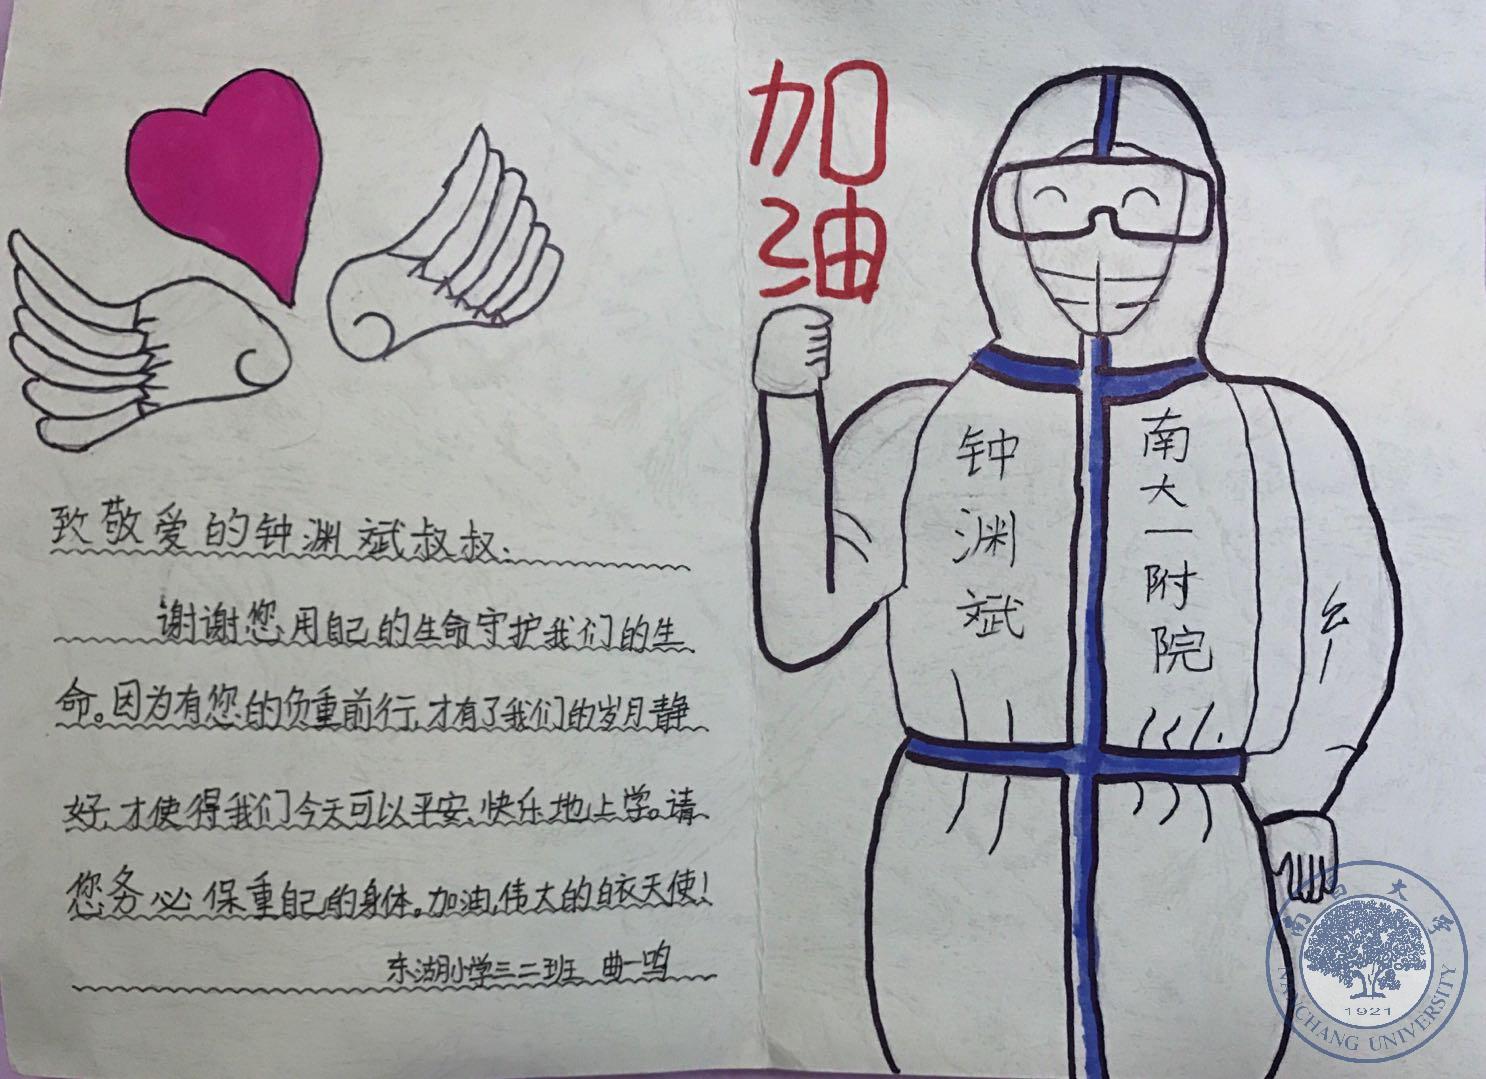 致敬爱的钟渊斌叔叔：
谢谢您,用自己的生命守护我们的生
命。因为有您的负重前行,才有了我们的岁月静
好,才使得我们今天可以平安、快乐地上学。请
您务必保重自己的身体。加油,伟大的白衣天使！
东湖小学三二班 曲一鸣
加
油
钟
渊
斌
南
大
一
附
院
南昌大学
1921
NANCHANG UNIVERSITY